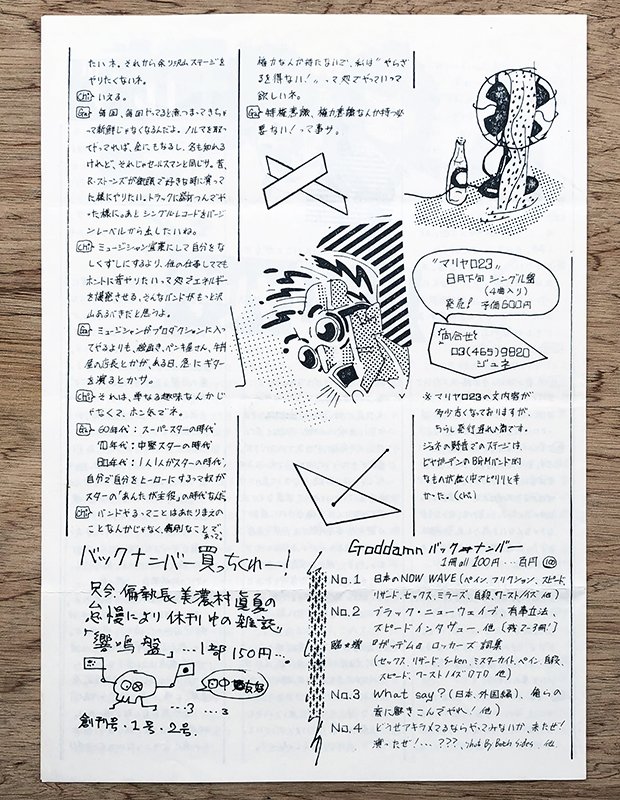 たいネ。それから余り汎ステージを
やりたくないネ。
Chi いえる。
Ga 毎回、毎回やってると煮つまってきちゃ
って新鮮じゃなくなるんだよ。ノルマを取っ
てやってれば、金にもなるし、名も知れる
けれど、それじゃセールスマンと同じサ。昔、
R・ストーンズが街頭で好きな時に演って
た様にやりたい。トラックに寝つんでや
った様に。あとシングルレコードをバージ
ンレーベルから出したいね。
Chi ミュージシャン営業にして自分をな
しくずしにするより、他の仕事してても
ホントに音やりたいって処でエネルギー
を爆発させる、そんなバンドがもっと沢
山あるべきだと思うよ。
Ga ミュージシャンがプロダクションに入っ
てやるよりも、絵画き、ペンキ屋さん、
屋の店長とかが、ある日、急にギター
を演るとかサ。
Chi それは、単なる趣味なんか
じゃなくて、ホンネでネ。
Ga 60年代：スーパースターの時代
70年代：中堅スターの時代
80年代：1人1人がスターの時代、
自分で自分をヒーローにするって奴が
スターの「あんたが主役」の時代なんだ。
Chi バンドやるってことはあたりまえの
ことなんかじゃなく、特別なことで
あって。
権力なんか持たないで、私は"やらざ
るを得ない！"って処でやっていって
欲しいネ。
Ga 特権意識、権力意識なんか持つ必
要ない！って事サ。
"マリヤロ23"
8月下旬 シングル盤
(4曲入り)
発売！ 予価600円
問合せ
03(465)9820
ジュネ
※マリヤロ23の文内容が
多少古くなっておりますが、
ちらし発行遅れの為です。
ジュネの野音でのステージは、
ビヤガーデンのBGMバンド的
なものが続く中でピリリと辛
かった。(chi)
バックナンバー買っちくれー！
只今、編執長美濃村眞夏の
怠慢により休刊中の雑誌」
「響鳴盤」…1部150円…
日中友好
…3…3
創刊号・1号・2号.
Goddamn バックナンバー
1冊all 100円…百円
No.1 日本のNOW WAVE(ペイン、フリクション、スピード、
リザード、セックス、ミラーズ、自殺、ワースト/ノイズ 他)
No.2 ブラック・ニューウェイブ、有事立法、
スピードインタヴュー、他[残2~3冊！]
臨増 『ガッデム』ロッカーズ 詞集
(セックス、リザード、S-ken、ミスターカイト、ペイン、自殺、
スピード、ワースト/ノイズ 070 他)
No.3 What say?(日本、外国編)、俺らの
音に聴きこんでやれ！他)
No.4 どうせアキラメてるならやってみないか、来たぜ！
演ったぜ！…???、Shub By Both Sides 他